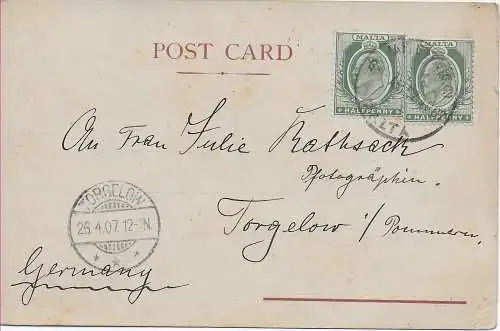 POST CARD
MALTA MALTA
HALFPENNY HALFPENNY
MALTA
An Frau Julie Rathsack
Photographin.
Torgelow i/Pommern.
TORGELOW
26.4.07.12-1N.
Germany